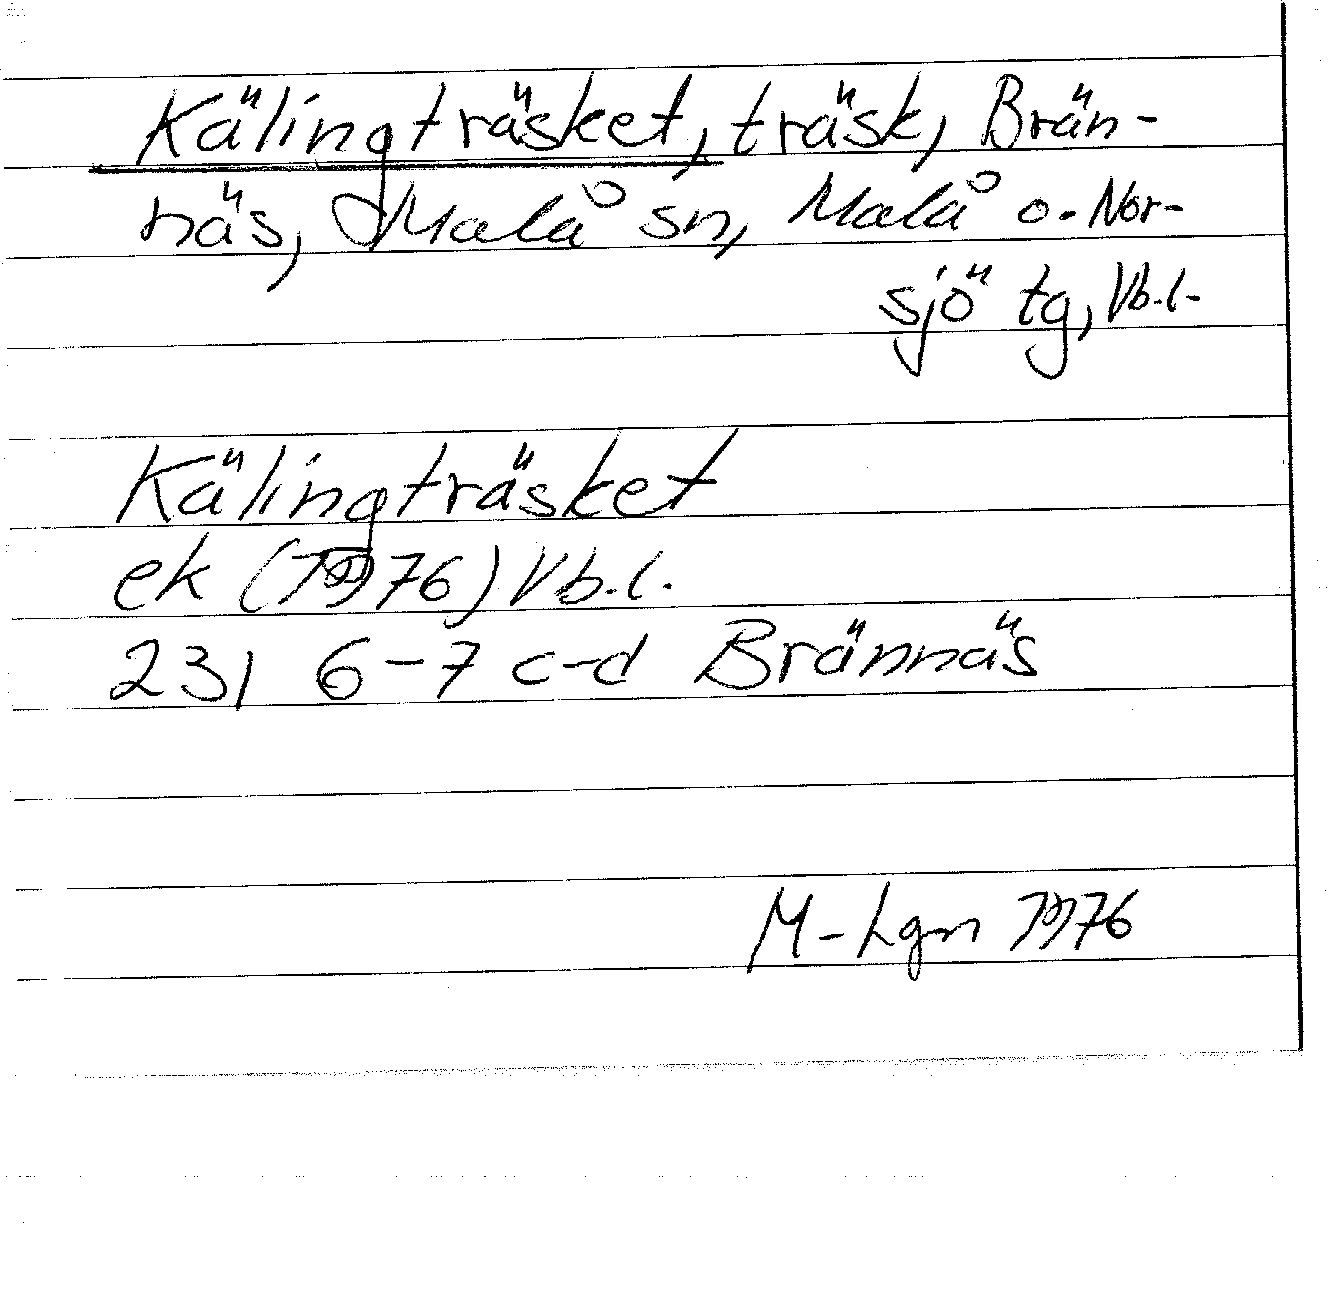 Kälingträsket, träsk, Brän-
näs, Malå sn, Malå o. Nor-
sjö tg, Vb.l.
Kälingträsket
ek (1976) Vb.l.
23I 6-7 c-d Brännäs
M-Lgn 1976